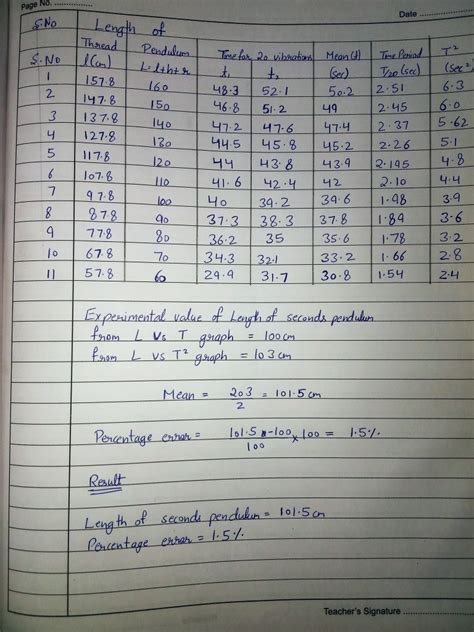 Page No. ..........
Date ..........
S.No Length of
S.No Thread l(cm) Pendulum L=l+h+r Time for 20 vibrations t₁ t₂ Mean(t) (sec) Time Period T/20 (sec) T² (sec²)
1 157.8 160 48.3 52.1 50.2 2.51 6.3
2 147.8 150 46.8 51.2 49 2.45 6.0
3 137.8 140 47.2 47.6 47.4 2.37 5.62
4 127.8 130 44.5 45.8 45.2 2.26 5.1
5 117.8 120 44 43.8 43.9 2.195 4.8
6 107.8 110 41.6 42.4 42 2.10 4.4
7 97.8 100 40 39.2 39.6 1.98 3.9
8 87.8 90 37.3 38.3 37.8 1.89 3.6
9 77.8 80 36.2 35 35.6 1.78 3.2
10 67.8 70 34.3 32.1 33.2 1.66 2.8
11 57.8 60 29.9 31.7 30.8 1.54 2.4
Experimental value of Length of seconds pendulum
from L vs T graph = 100cm
from L vs T² graph = 103cm
Mean = 203/2 = 101.5 cm
Percentage error = 101.5-100/100 × 100 = 1.5%
Result
Length of seconds pendulum = 101.5cm
Percentage error = 1.5%
Teacher's Signature ..........